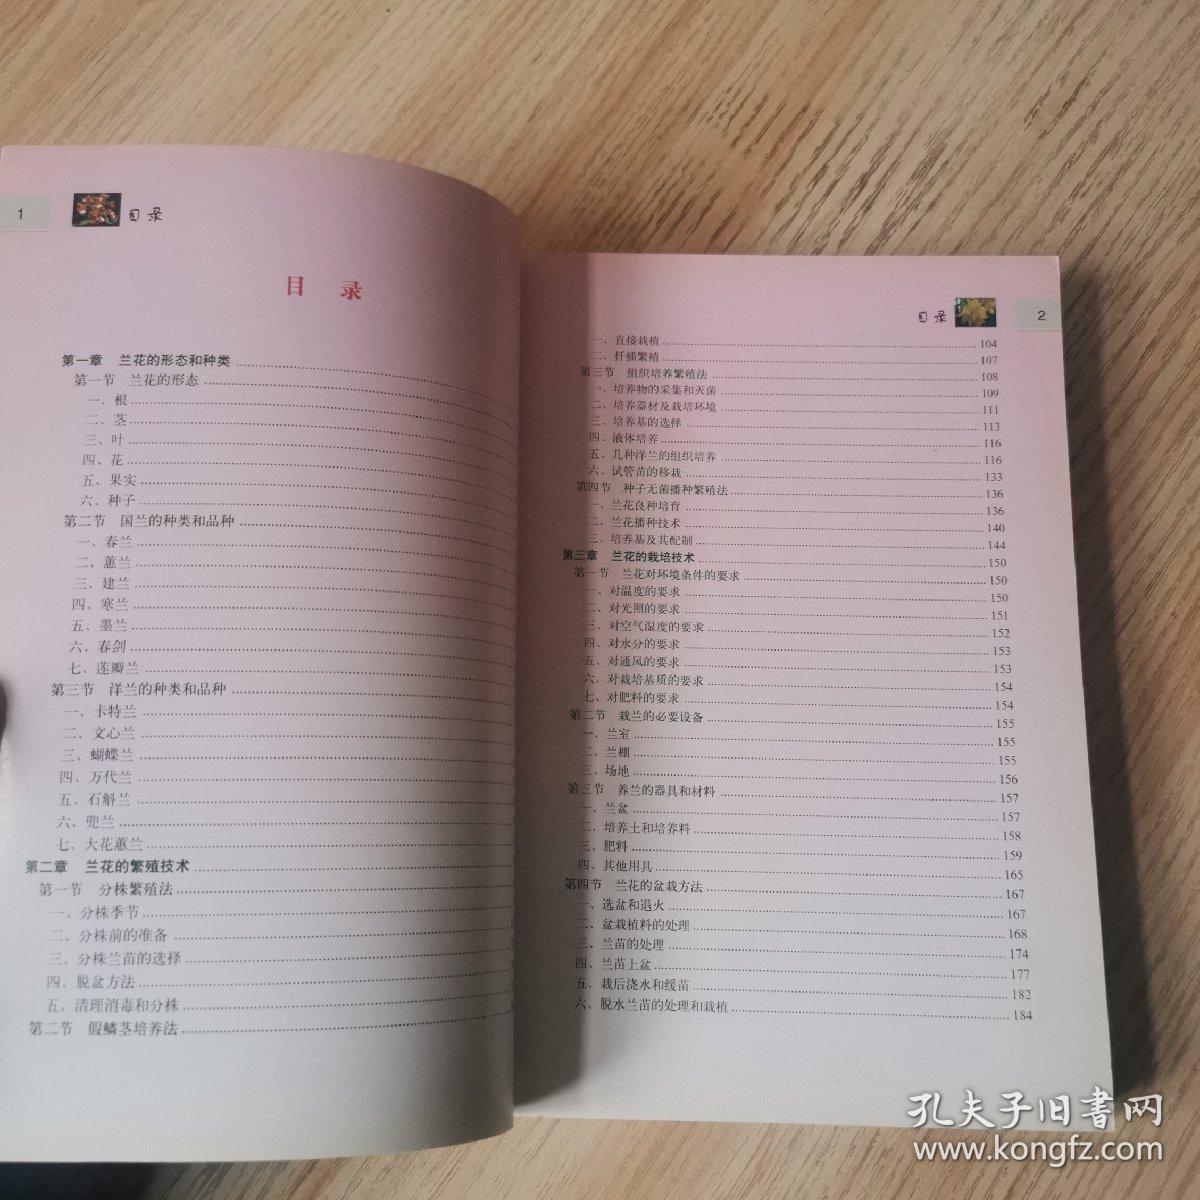 1
目录
目 录
第一章 兰花的形态和种类
第一节 兰花的形态
一、根
二、茎
三、叶
四、花
五、果实
六、种子
第二节 国兰的种类和品种
一、春兰
二、蕙兰
三、建兰
四、寒兰
五、墨兰
六、春剑
七、莲瓣兰
第三节 洋兰的种类和品种
一、卡特兰
二、文心兰
三、蝴蝶兰
四、万代兰
五、石斛兰
六、兜兰
七、大花蕙兰
第二章 兰花的繁殖技术
第一节 分株繁殖法
一、分株季节
二、分株前的准备
三、分株兰苗的选择
四、脱盆方法
五、清理消毒和分株
第二节 假鳞茎培养法
目录
2
一、直接栽植 104
二、扦插繁殖 107
第三节 组织培养繁殖法 108
一、培养物的采集和灭菌 109
二、培养器材及栽培环境 111
三、培养基的选择 113
四、液体培养 116
五、几种洋兰的组织培养 116
六、试管苗的移栽 133
第四节 种子无菌播种繁殖法 136
一、兰花良种培育 136
二、兰花播种技术 140
三、培养基及其配制 144
第三章 兰花的栽培技术 150
第一节 兰花对环境条件的要求 150
一、对温度的要求 150
二、对光照的要求 151
三、对空气湿度的要求 152
四、对水分的要求 153
五、对通风的要求 153
六、对栽培基质的要求 154
七、对肥料的要求 154
第二节 栽兰的必要设备 155
一、兰室 155
二、兰棚 155
三、场地 156
第三节 养兰的器具和材料 157
一、兰盆 157
二、培养土和培养料 158
三、肥料 159
四、其他用具 165
第四节 兰花的盆栽方法 167
一、选盆和退火 167
二、盆栽植料的处理 168
三、兰苗的处理 174
四、兰苗上盆 177
五、栽后浇水和缓苗 182
六、脱水兰苗的处理和栽植 184
孔夫子旧书网
www.kongfz.com